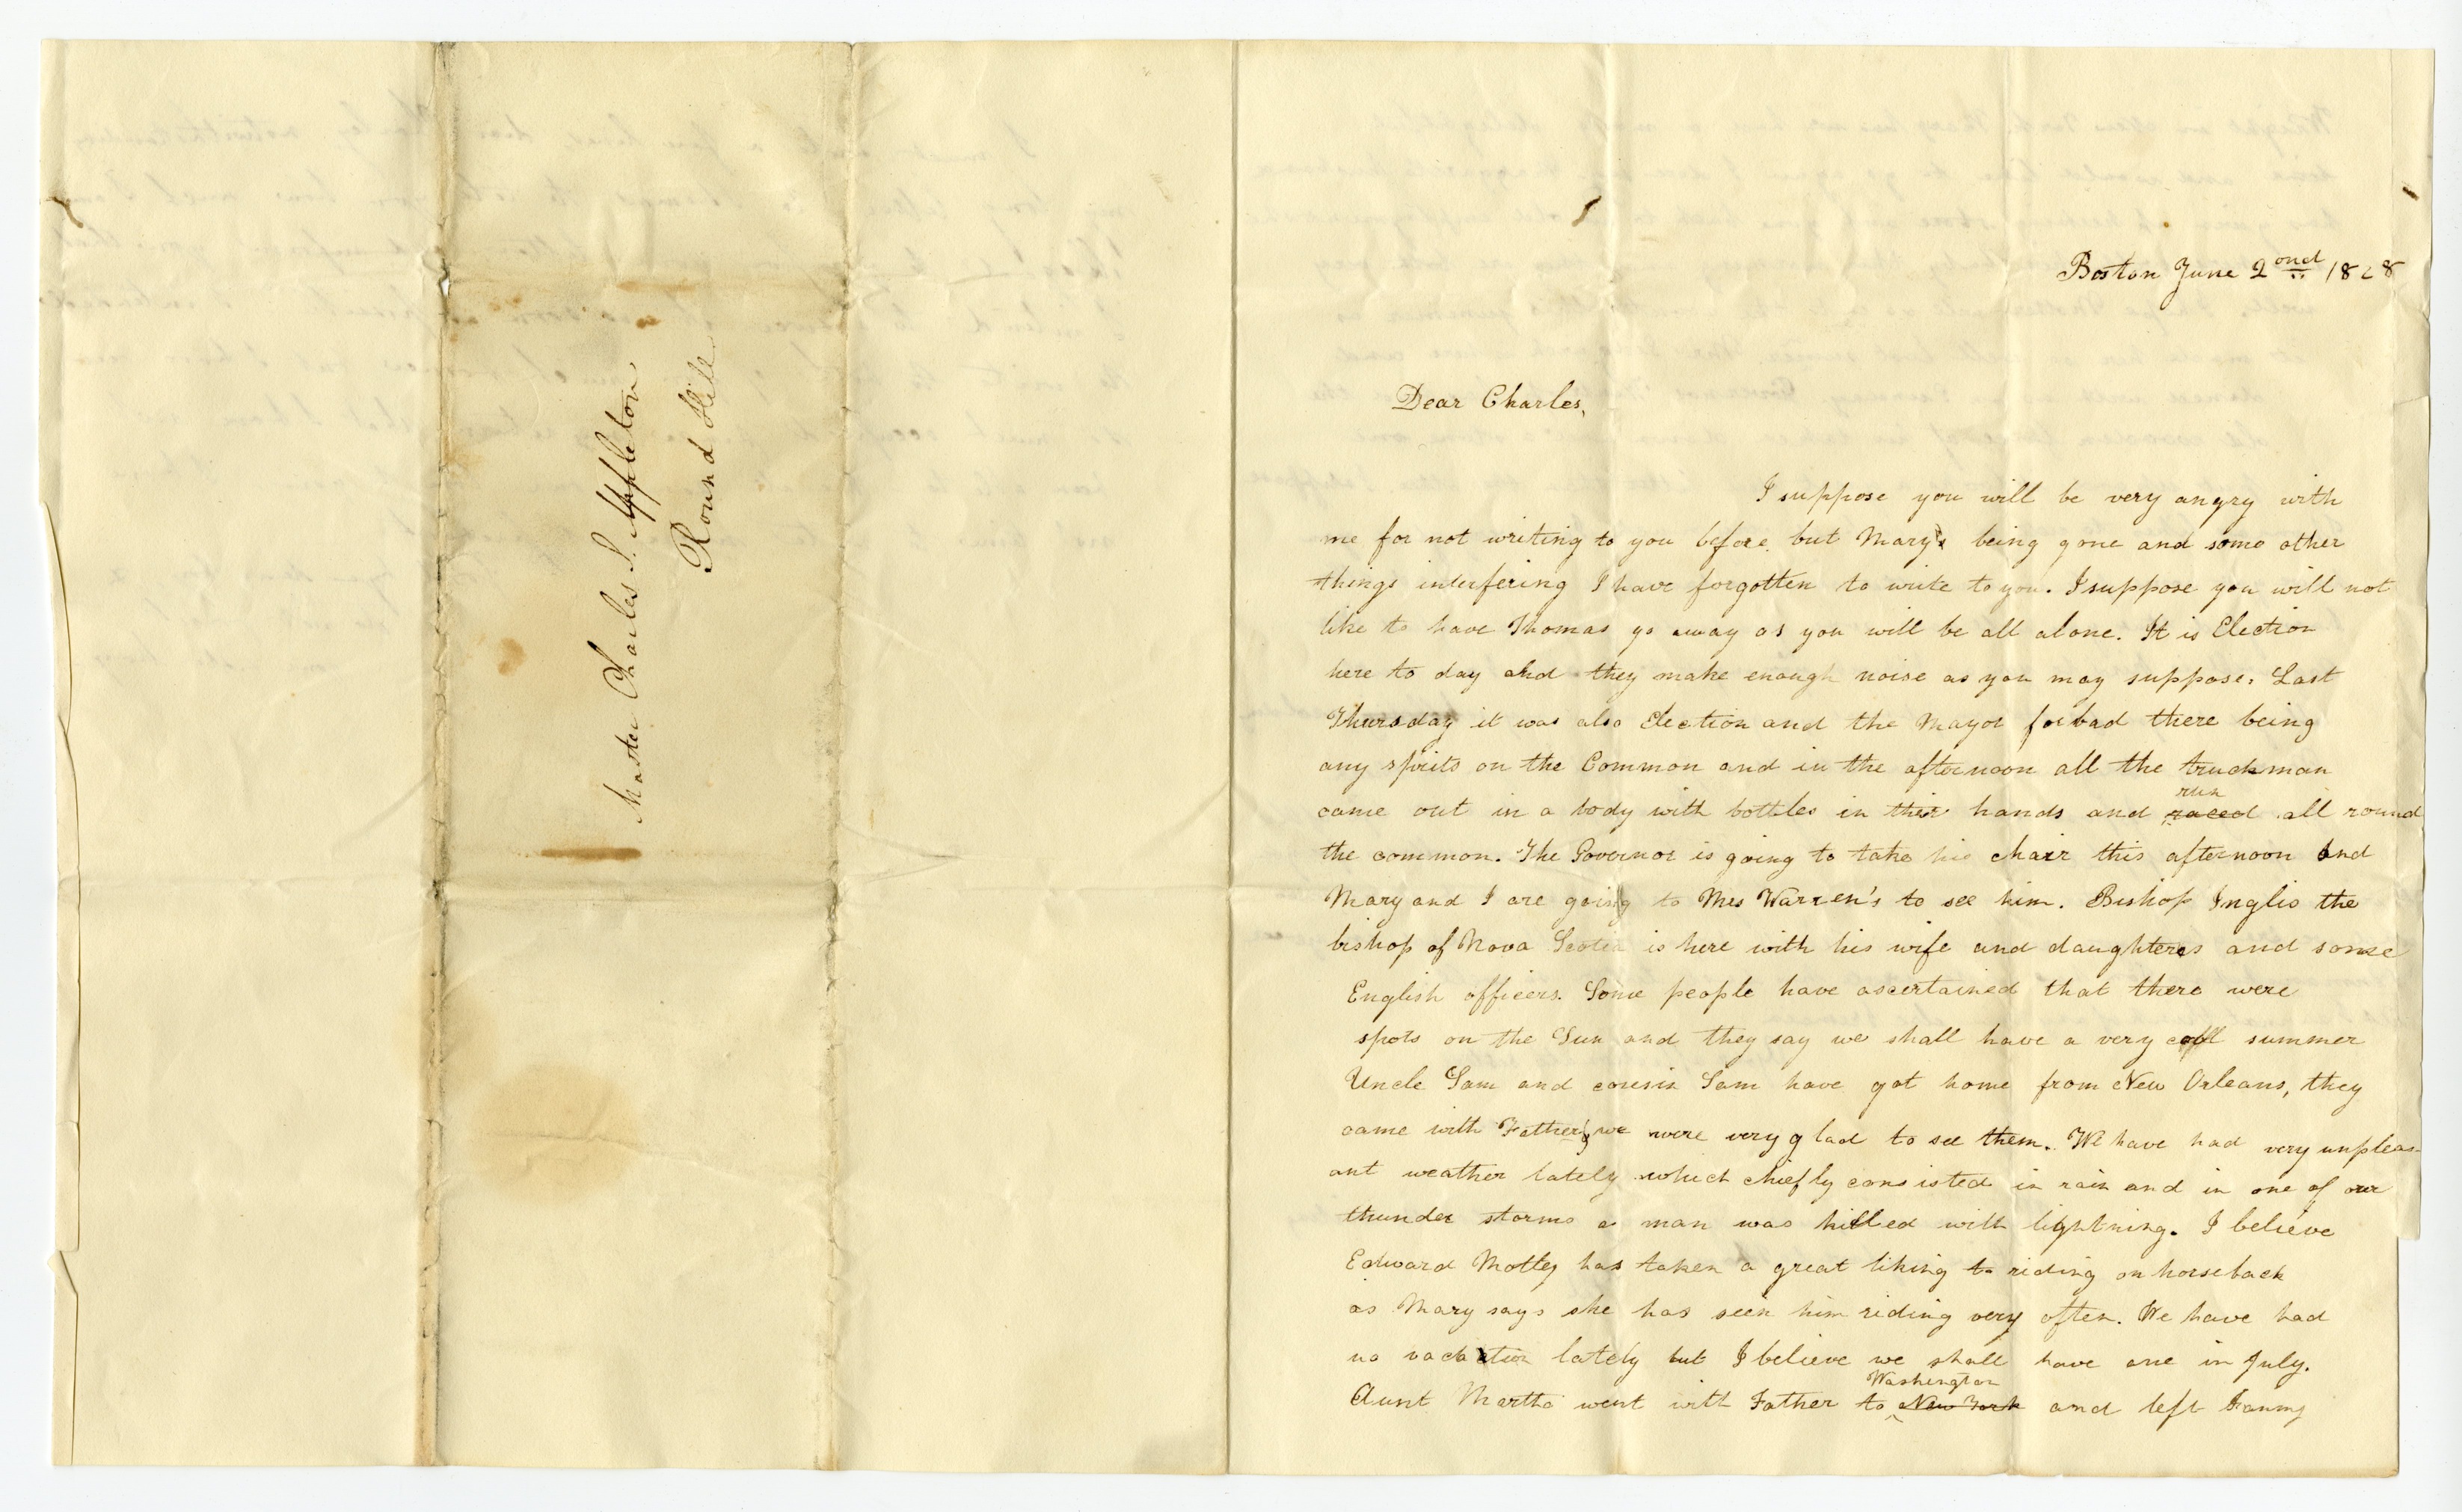 Master Charles S. Appleton
Round Hill
Boston June 2ond 1828
Dear Charles,
I suppose you will be very angry with
me for not writing to you before, but Mary's being gone and some other
things interfering I have forgotten to write to you. I suppose you will not
like to have Thomas go away as you will be all alone. It is Election
here to day and they make enough noise as you may suppose. Last
Thursday it was also Election and the Mayor forbad there being
any spirits on the Common and in the afternoon all the truckman
came out in a body with bottles in their hands and raced run all round
the common. The Governor is going to take his chair this afternoon and
Mary and I are going to Mrs Warren's to see him. Bishop Inglis the
bishop of Nova Scotia is here with his wife and daughters and some
English officers. Some people have ascertained that there were
spots on the Sun and they say we shall have a very cold summer
Uncle Sam and cousin Sam have got home from New Orleans, they
came with Father, we were very glad to see them. We have had very unpleas-
ant weather lately which chiefly consisted in rain and in one of our
thunder storms a man was killed with lightning. I believe
Edward Motley has taken a great liking to riding on horseback
as Mary says she has seen him riding very often. We have had
no vacation lately but I believe we shall have one in July.
Aunt Martha went with Father to New York Washington and left Fanny